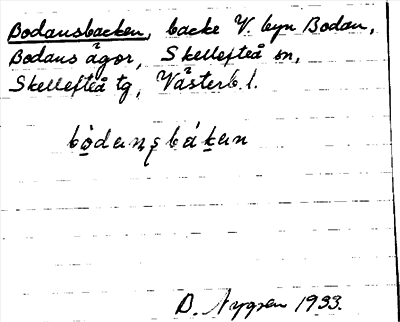 Bodansbacken, backe V. byn Bodan,
Bodans ägor, Skellefteå sn,
Skellefteå tg, Västerb. l.
bòdanşbákan
D. Nygren 1933.